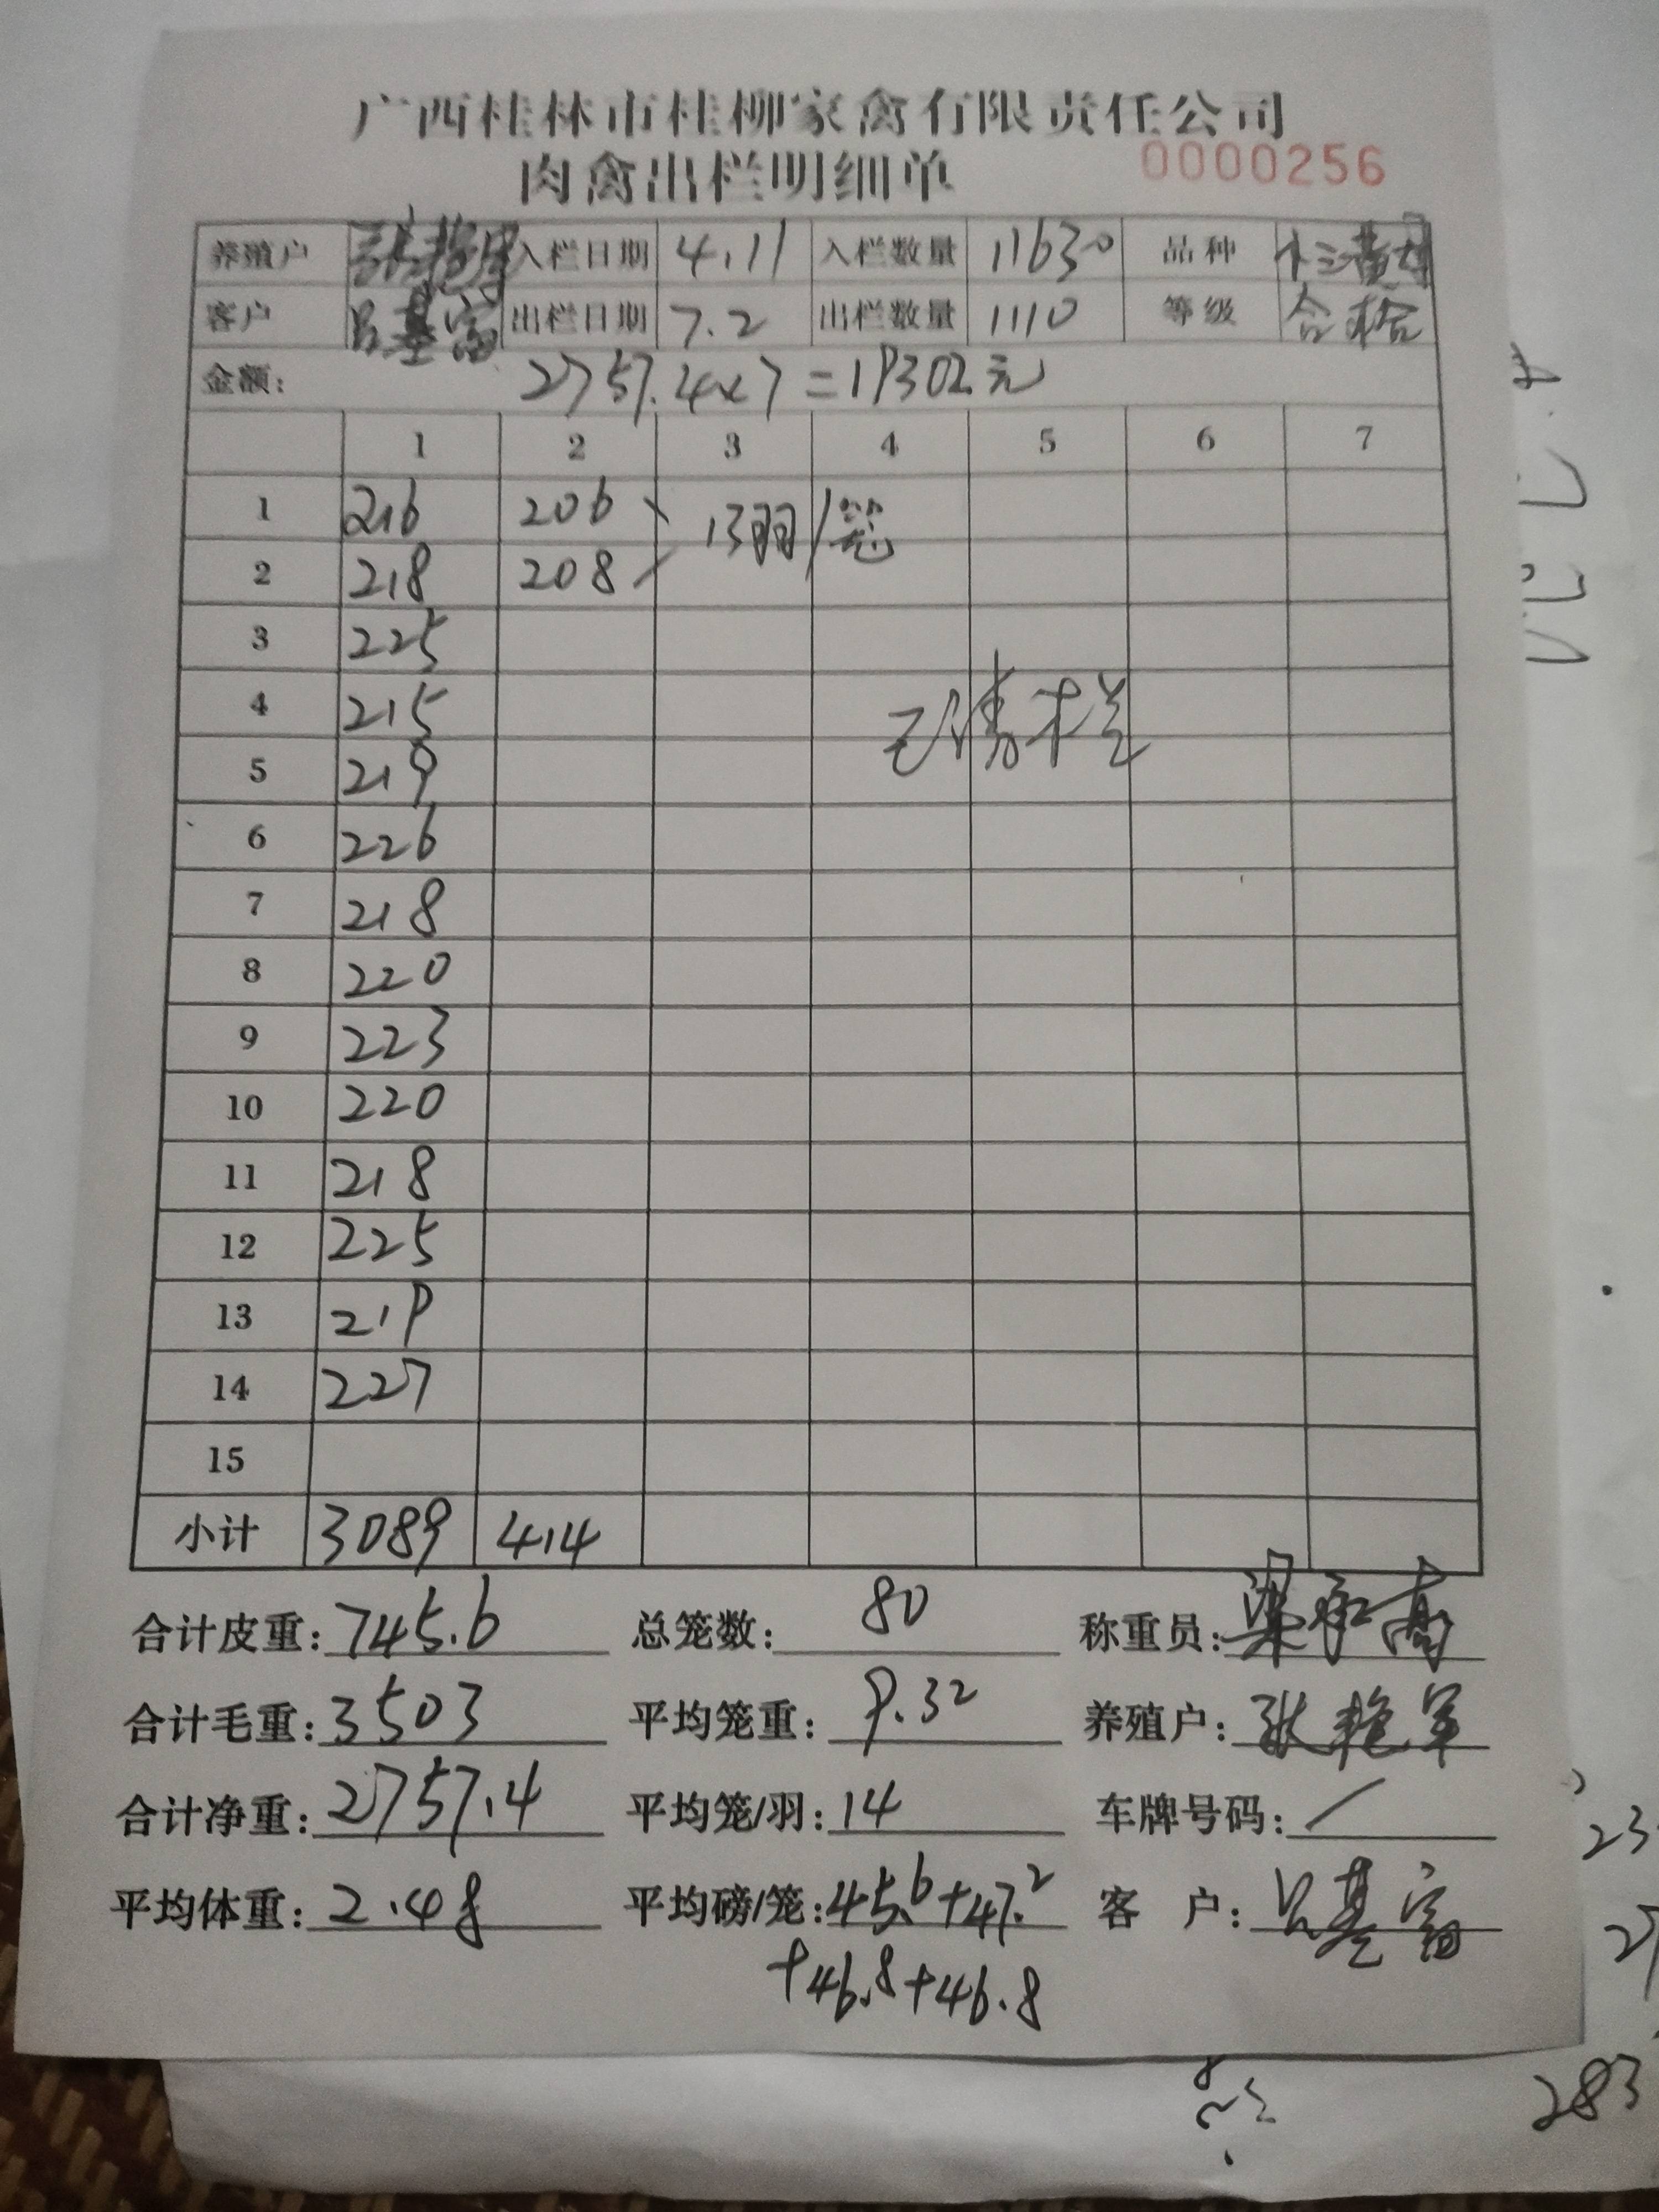 广西桂林市桂柳家禽有限责任公司
肉禽出栏明细单 0000256
养殖户 张艳军 入栏日期 4.11 入栏数量 11630 品种
客户 吕基富 出栏日期 7.2 出栏数量 1110 等级 合格
金额: 2757.4x7=19302元
1 2 3 4 5 6 7
1 216 206 13羽/笼
2 218 208
3 225
4 215 已清栏
5 219
6 226
7 218
8 220
9 223
10 220
11 218
12 225
13 219
14 227
15
小计 3089 414
合计皮重: 745.6 总笼数: 80 称重员:
合计毛重: 3503 平均笼重: 9.32 养殖户: 张艳军
合计净重: 2757.4 平均笼/羽: 14 车牌号码: /
平均体重: 2.48 平均磅/笼: 45.6+47.2 客 户: 吕基富
+46.8+46.8
23
27
283